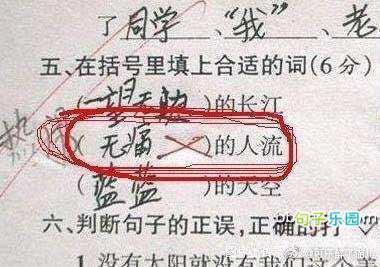 了同学、“我”、老
五、在括号里填上合适的词(6分)
(一望无)的长江
(无痛)的人流
(蓝蓝)的天空
六、判断句子的正误,正确的打
1.没有太阳就没有我们这个美
句子乐园